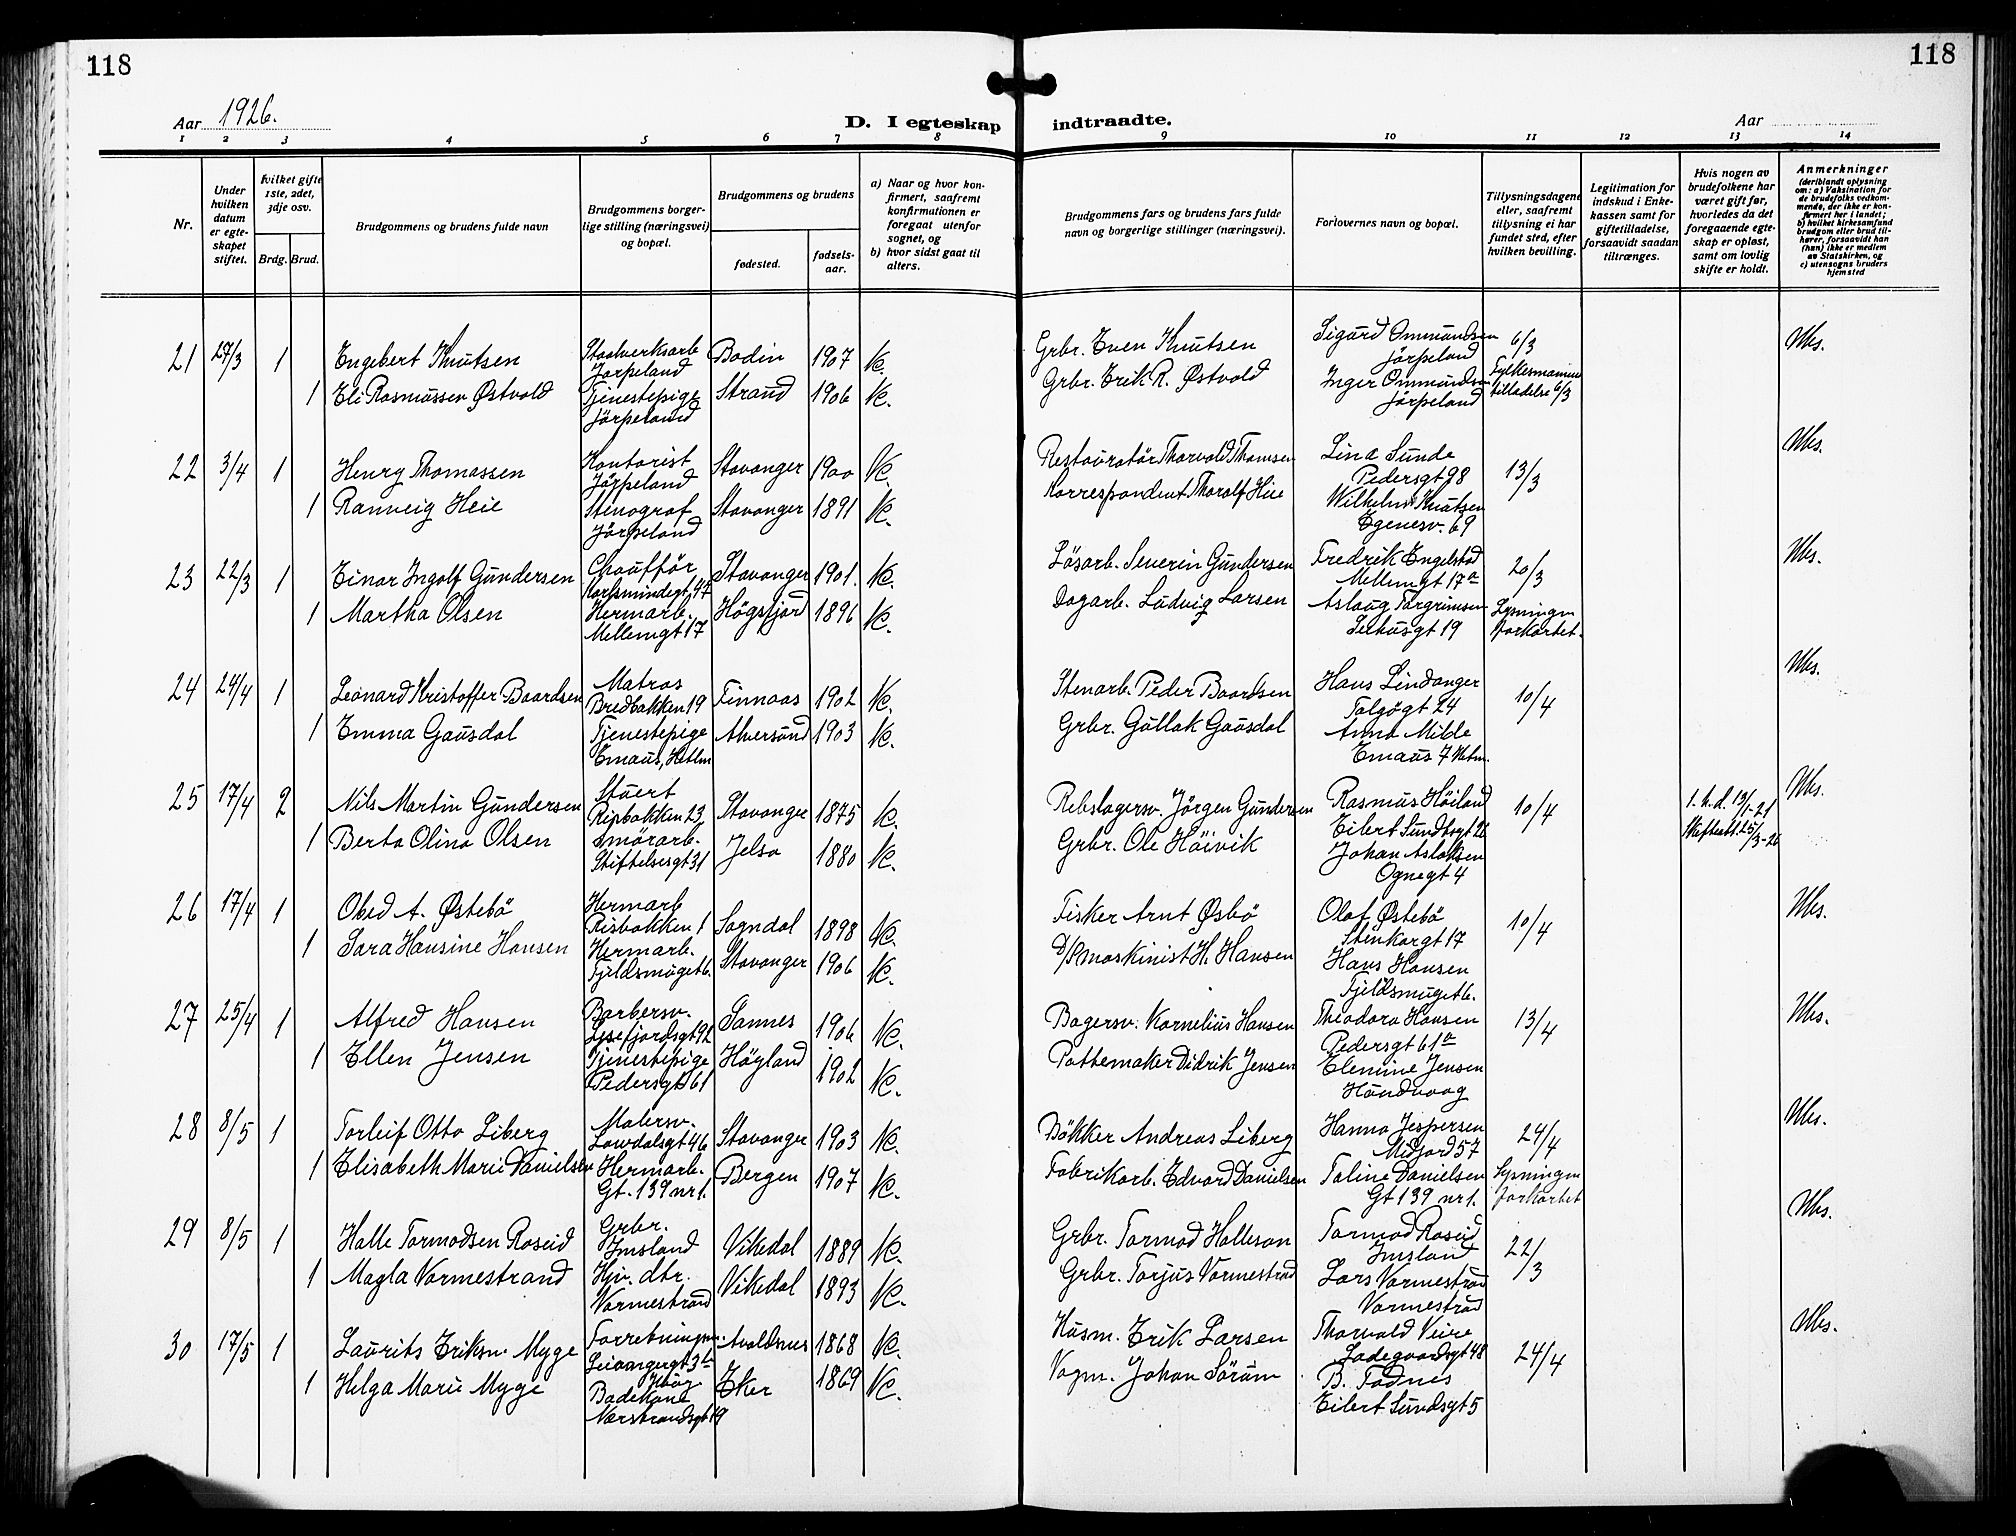 118
118
Aar 1926.
D. I egteskap indtraadte.
Aar
1 2 3 4 5 6 7 8 9 10 11 12 13 14
Nr.
Under hvilken datum er egteskapet stiftet.
hvilket gifte 1ste, 2det, 3dje osv.
Brdg. Brud.
Brudgommens og brudens fulde navn
Brudgommens borgerlige stilling (næringsvei) og bopæl.
Brudgommens og brudens
fødested.
fødselsaar.
a) Naar og hvor konfirmert, saafremt konfirmationen er foregaat utenfor sognet, og
b) hvor sidst gaat til alters.
Brudgommens fars og brudens fars fulde navn og borgerlige stillinger (næringsvei).
Forlovernes navn og bopæl.
Tillysningsdagene eller, saafremt tillysning ei har fundet sted, efter hvilken bevilling.
Legitimation for indskud i Enkekassen samt for giftetilladelse, forsaavidt saadan tiltrænges.
Hvis nogen av brudefolkene har været gift før, hvorledes da det foregaaende egteskap er opløst, samt om lovlig skifte er holdt.
Anmerkninger
(deriblandt oplysning om: a) Vaksination for de brudefolks vedkommende, der ikke er konfirmert her i landet; b) hvilket kirkesamfund brudgom eller brud tilhører, forsaavidt han (hun) ikke er medlem av Statskirken, og c) utensogns bruders hjemsted
21 27/3 1 Engebert Knutsen Staalverksarb Jørpeland Bodin 1907 K. Grbr. Even Knutsen Sigurd Ommundsen Jørpeland 6/3
1 Eli Rasmussen Østvold Tjenestepige Jørpeland Strand 1906 K. Grbr. Erik R. Østvold Inger Ommundsen Jørpeland Fylkesmannens tilladelse 6/3
22 3/4 1 Henry Thomassen Kontorist Jørpeland Stavanger 1900 K. Restauratør Thorvald Thomsen Lina Sunde Pedersgt 98 13/3
1 Ranveig Heie Stenograf Jørpeland Stavanger 1891 K. Korrespondent Thoralf Heie Wilhelm Knutsen Egenesv. 69
23 22/3 1 Einar Ingolf Gundersen Chauffør Stavanger 1901. K. Løsarb. Severin Gundersen Fredrik Engelstad Mellemgt 17a 20/3
1 Martha Olsen Hermarb. Mellemgt 17 Høgsfjord 1896 K. Dagarb. Ludvig Larsen Aslaug Torgrimsen 19 Lysningen forkortet.
24 24/4 1 Leonard Kristoffer Baardsen Matros Bredbakken 19 Finnaas 1902 K. Stenarb. Peder Baardsen Hans Lindanger Tolgøgt 24 10/4
1 Emma Gausdal Tjenestepige Emaus, Hetlm Alversund 1903 K. Grbr. Gullak Gausdal Anna Milde Emaus 7 Hetm.
25 17/4 2 Nils Martin Gundersen Stuert 23 Stavanger 1875 K. Rebslagersv. Jørgen Gundersen Rasmus Høiland Eilert Sundtsgt 10/4
1 Berta Olina Olsen Smørarb. Stiftelsesgt 31 Jelsa 1880 K. Grbr. Ole Høivik Johan Aslaksen Ognegt 4
26 17/4 1 Obed A. Østebø Hermarb Risbakken 1 Sogndal 1898 K. Fisker Arnt Øsbø Olaf Østebø Stenkargt 17 10/4
1 Sara Hansine Hansen Hermarb. Fjeldsmuget 6. Stavanger 1906 K. D/S maskinist H. Hansen Hans Hansen Fjeldsmuget 6.
27 25/4 1 Alfred Hansen Barbersv. Lysefjordsgt 92 Sannes 1906 K. Bagersv. Kornelius Hansen Theodora Hansen Pedersgt 61a 13/4
1 Ellen Jensen Tjenestepige Pedersgt 61 Høyland 1902 K. Pottemaker Didrik Jensen Elenine Jensen Hundvaag
28 8/5 1 Torleif Otto Liberg Malersv. Løvdalsgt 46 Stavanger 1903 K. Bøkker Andreas Liberg Hanna Jespersen Midjord 57 24/4
1 Elisabeth Marie Danielsen Hermarb. Gt. 139 nr 1. Bergen 1907 K. Fabrikarb. Edvard Danielsen Taline Danielsen Gt 139 nr 1. Lysningen forkortet
29 8/5 1 Halle Tormodsen Roseid Grbr. Imsland Vikedal 1889 K. Grbr. Tormod Halleson Tormod Roseid Imsland 22/3
1 Magla Vormestrand Hjv. dtr. Vormestrand Vikedal 1893 K. Grbr. Torjus Vormestrad Lars Vormestrad Vormestrad
30 17/5 1 Laurits Eriksen Myge Avaldsnes 1868 K. Husm. Erik Larsen Thorvald Veire Ladegaardsgt 48 24/4
1 Helga Marie Myge Badekone Nærstrandsgt 19 Eker 1869 K. Vogm. Johan Sørum B. Tødnes Eilert Sundsgt 5